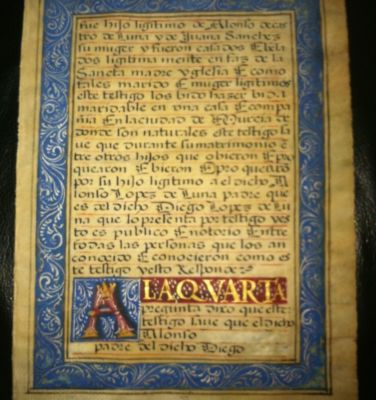 fue hijo ligitimo de Alonso de cas
tro de Luna y de Juana Sanchez
su muger y fueron casados E bela
dos ligitima mente en faz de la
Sancta madre yglesia E como
tales marido E muger ligitimos
este testigo los bido hazer bida
maridable en una casa E compa
ñia En la ciudad de Murcia de
donde son naturales este testigo sa
ve que durante su matrimonio en
tre otros hijos que obieron E pro
quearon E bieron E procrearon
por su hijo ligitimo a el dicho Al
onso Lopez de Luna padre que
es del dicho Diego Lopez de Lu
na que lo presenta por testigo y es
to es publico E notorio Entre
todas las personas que los an
conocido E conocieron como es
te testigo y esto Responde
A LA QVARTA
pregunta dixo que este
testigo save que el dicho
Alonso
padre del dicho Diego